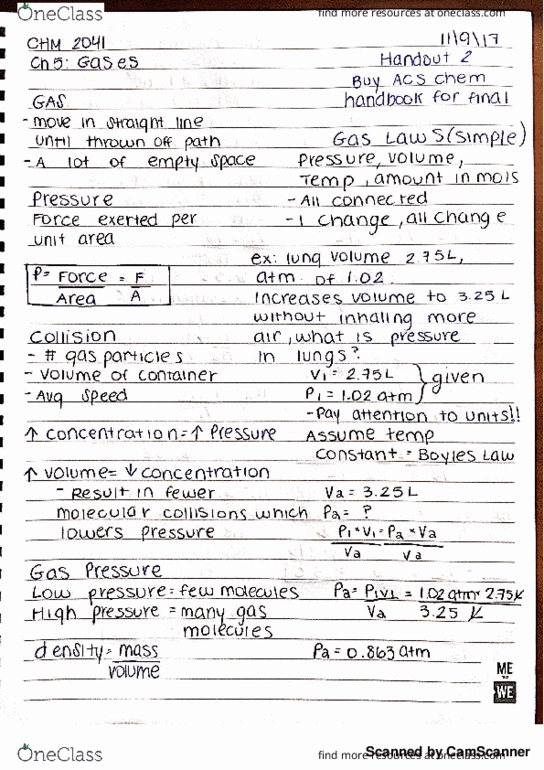 OneClass
find more resources at oneclass.com
CHM 2041
11/9/17
Ch 5: Gases
Handout 2
Buy ACS chem
handbook for final
GAS
- move in straight line
until thrown off path
- A lot of empty space
Pressure
Force exerted per
unit area
P= Force = F
Area A
Collision
- # gas particles
- Volume of container
- Avg speed
↑ concentration = ↑ Pressure
↑ volume = ↓ concentration
- Result in fewer
molecular collisions which
lowers pressure
Gas Pressure
Low pressure = few molecules
High pressure = many gas
molecules
density = mass
volume
Gas Laws (simple)
Pressure, volume,
Temp, amount in mols
- All connected
- 1 change, all change
ex: lung volume 2.75L,
atm of 1.02
Increases volume to 3.25 L
without inhaling more
air, what is pressure
in lungs?
V1 = 2.75L
P1 = 1.02 atm
given
- Pay attention to units!!
Assume temp
constant = Boyles Law
V2 = 3.25L
P2 = ?
P1 • V1 = P2 • V2
V2 V2
P2 = P1V1 = 1.02 atm • 2.75L
V2 3.25 L
P2 = 0.863 atm
ME
TO
WE
OneClass
find more resources at oneclass.com
Scanned by CamScanner